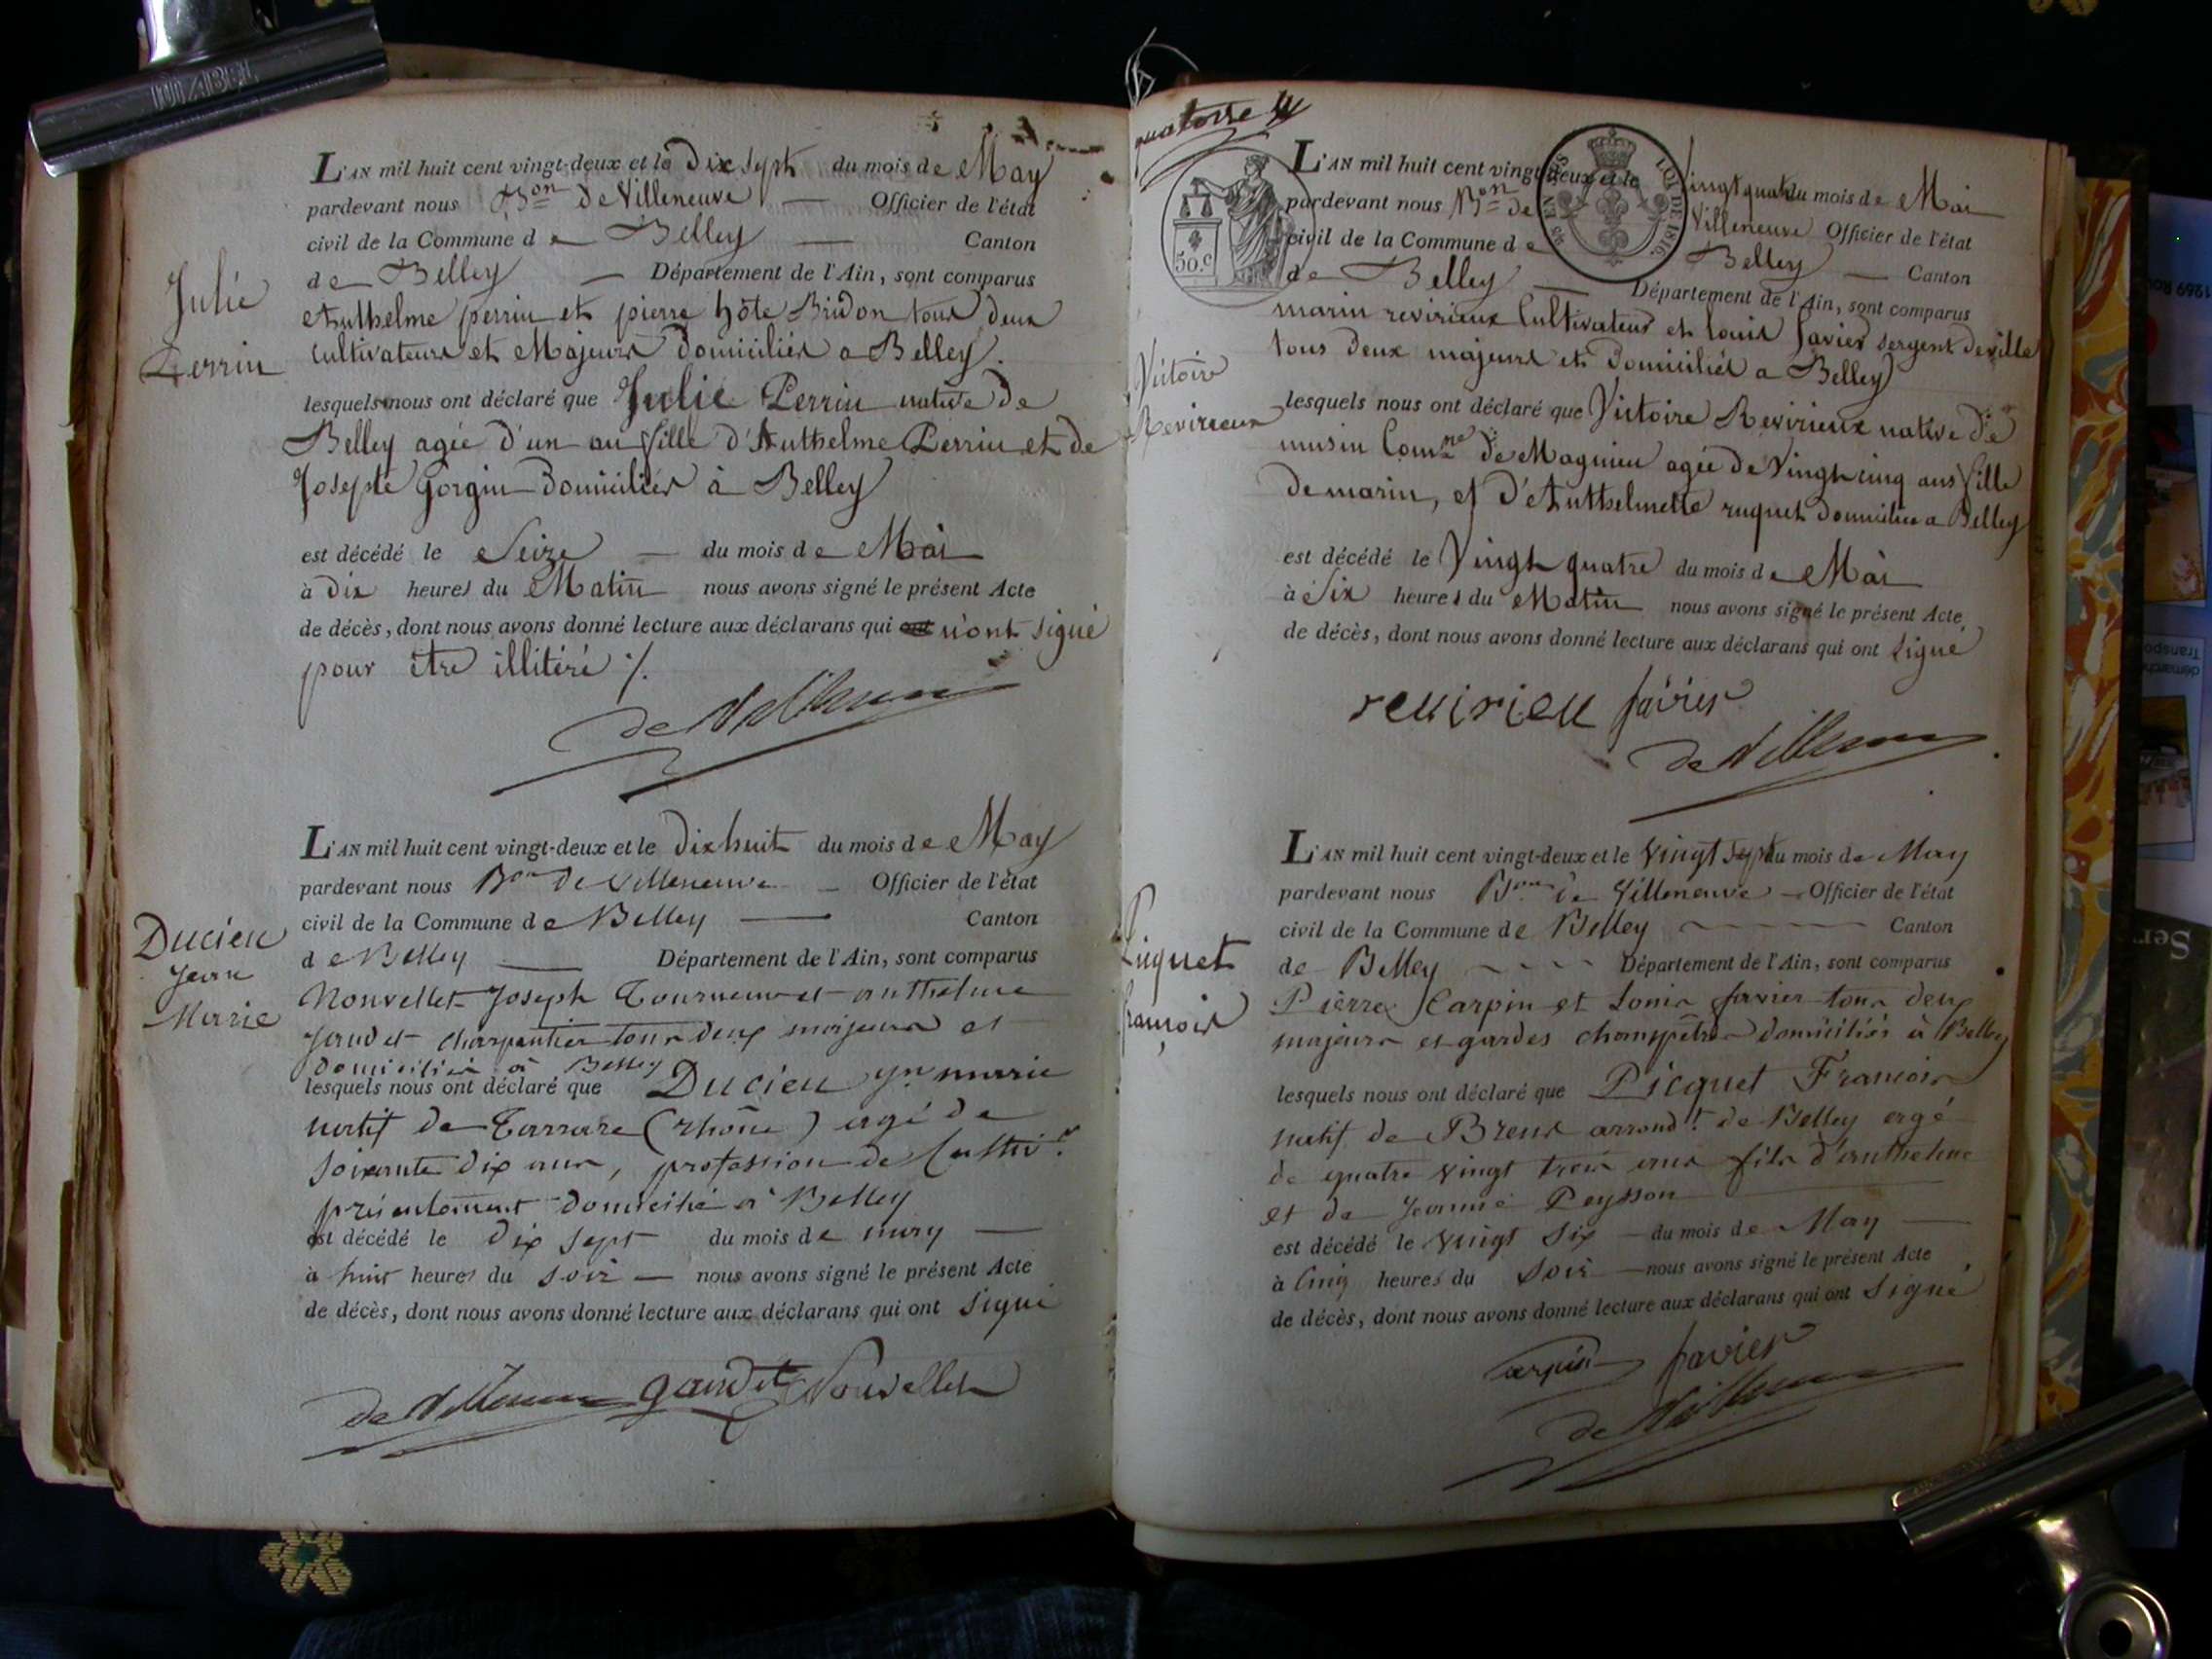 Julie
Perrin
L'AN mil huit cent vingt-deux et le Dix Sept du mois de May
pardevant nous Bon de Villeneuve Officier de l'état
civil de la Commune de Belley Canton
de Belley Département de l'Ain, sont comparus
Anthelme perrin et pierre hôte Bridon tous deux
cultivateurs et Majeurs domiciliés a Belley.
lesquels nous ont déclaré que Julie Perrin native de
Belley agée d'un an fille d'Anthelme Perrin et de
Josepte Gorgin Domiciliés à Belley
est décédé le Seize du mois de Mai
à Dix heures du Matin nous avons signé le présent Acte
de décès, dont nous avons donné lecture aux déclarans qui ont n'ont signé
pour être illitéré ./.
de Villeneuve
Ducieu
Jean
Marie
L'AN mil huit cent vingt-deux et le Dix huit du mois de May
pardevant nous Bon de Villeneuve Officier de l'état
civil de la Commune de Belley Canton
de Belley Département de l'Ain, sont comparus
Nouvellet Joseph Tourneur et anthelme
gaudet charpentier tous deux majeurs et
domiciliés à Belley
lesquels nous ont déclaré que Ducieu Jn marie
natif de Tarrare (rhône) agé de
soixante dix ans, profession de Cultivr
présentement domicilié à Belley
est décédé le dix sept du mois de may
à huit heures du soir nous avons signé le présent Acte
de décès, dont nous avons donné lecture aux déclarans qui ont signé
de Villeneuve gaudet Nouvellet
quatorze
50.c
EN SUS LOI DE 1816
Victoire
Revirieux
L'AN mil huit cent vingt-deux et le Vingt quatre du mois de Mai
pardevant nous Bon de Villeneuve Officier de l'état
civil de la Commune de Belley Canton
de Belley Département de l'Ain, sont comparus
marin revirieux Cultivateur et louis favier sergent de ville
tous deux majeurs et Domiciliés a Belley
lesquels nous ont déclaré que Victoire Revirieux native de
musin Comne de Magnieu agée de Vingt cinq ans fille
de marin, et d'Anthelmette ruquet domiciliée a Belley
est décédé le Vingt quatre du mois de Mai
à Six heures du Matin nous avons signé le présent Acte
de décès, dont nous avons donné lecture aux déclarans qui ont signé
reuirieu favier
de Villeneuve
Picquet
françois
L'AN mil huit cent vingt-deux et le vingt sept du mois de May
pardevant nous Bon de Villeneuve Officier de l'état
civil de la Commune de Belley Canton
de Belley Département de l'Ain, sont comparus
Pierre Carpin et Louis favier tous deux
majeurs et gardes champêtres domiciliés à Belley
lesquels nous ont déclaré que Picquet François
natif de Brens arrondt de Belley agé
de quatre vingt trois ans fils d'anthelme
et de Jeanne Peysson
est décédé le vingt six du mois de May
à Cinq heures du soir nous avons signé le présent Acte
de décès, dont nous avons donné lecture aux déclarans qui ont signé
Carpin favier
de Villeneuve